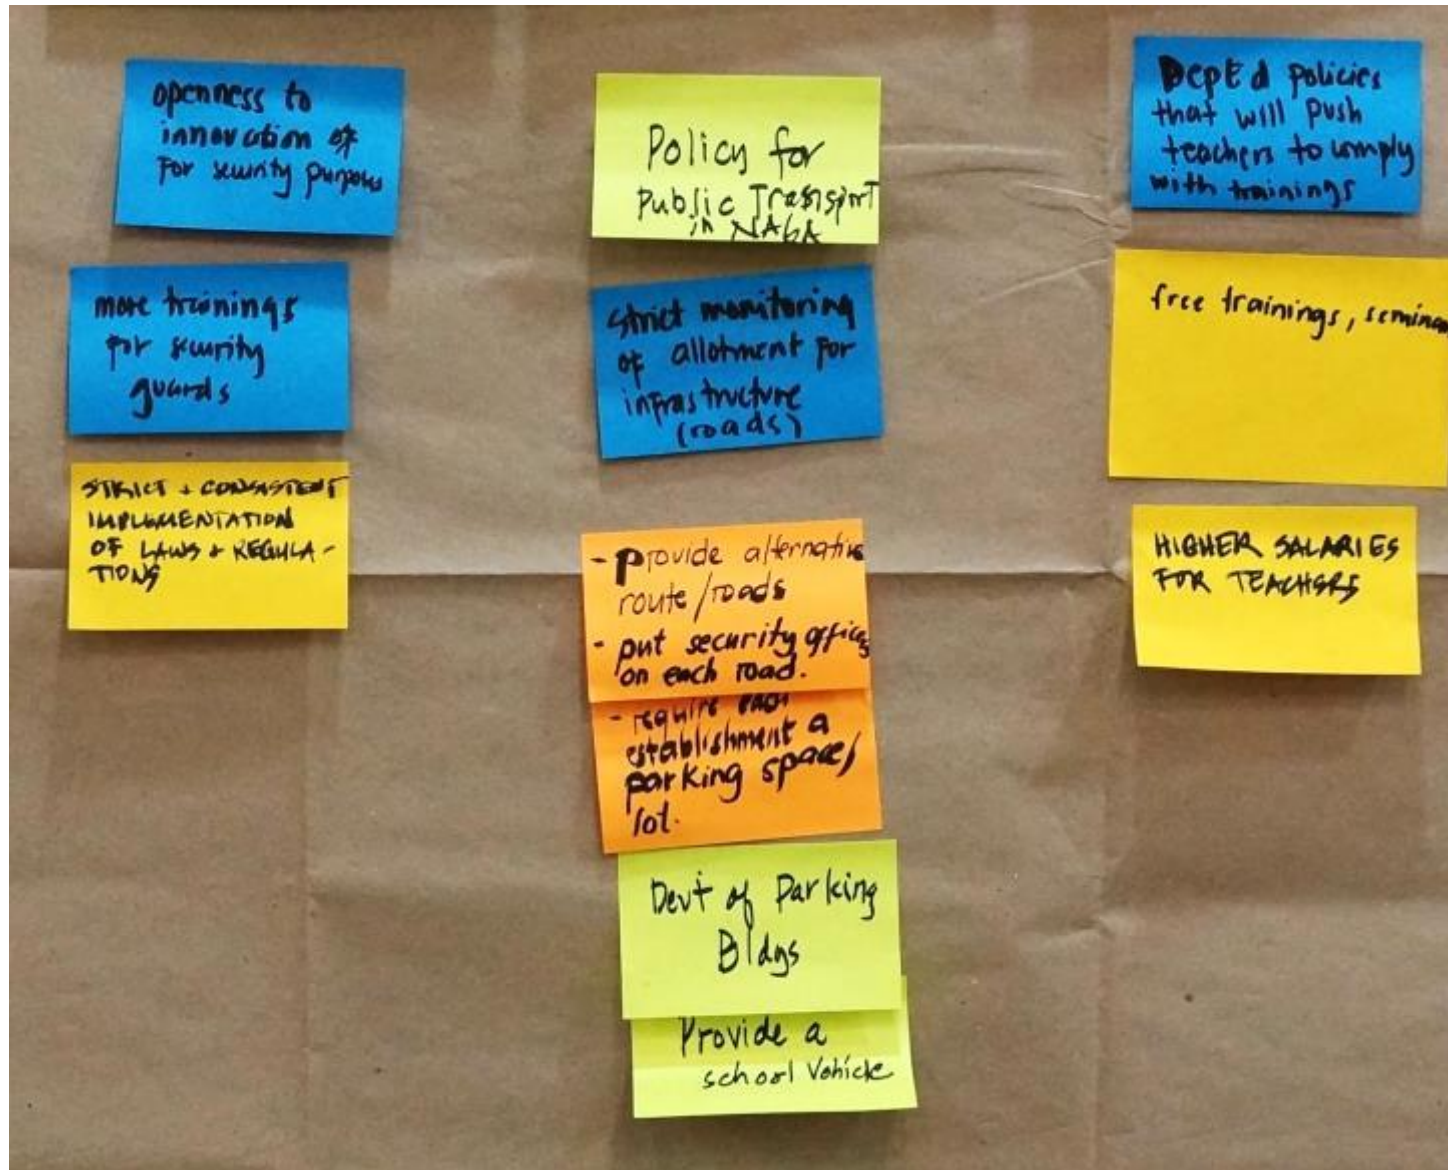 openness to
innovation of
for security purposes
more trainings
for security
guards
STRICT + CONSISTENT
IMPLEMENTATION
OF LAWS + REGULA-
TIONS
Policy for
Public Transport
in NAGA
strict monitoring
of allotment for
infrastructure
(roads)
- provide alternative
route/roads
- put security offices
on each road.
- require each
establishment a
parking space/
lot.
Devt of Parking
Bldgs
Provide a
school Vehicle
DepEd policies
that will push
teachers to comply
with trainings
free trainings, semina
HIGHER SALARIES
FOR TEACHERS